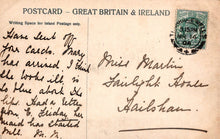 POSTCARD – GREAT BRITAIN & IRELAND
Writing Space for Inland Postage only.
Have sent off
your Cards. Mary
has arrived. I think
she looks ill is
so blue about the
lips. Had a letter
from E. Friday, her
has started
Miss Martin
Sunlight House
Hailsham